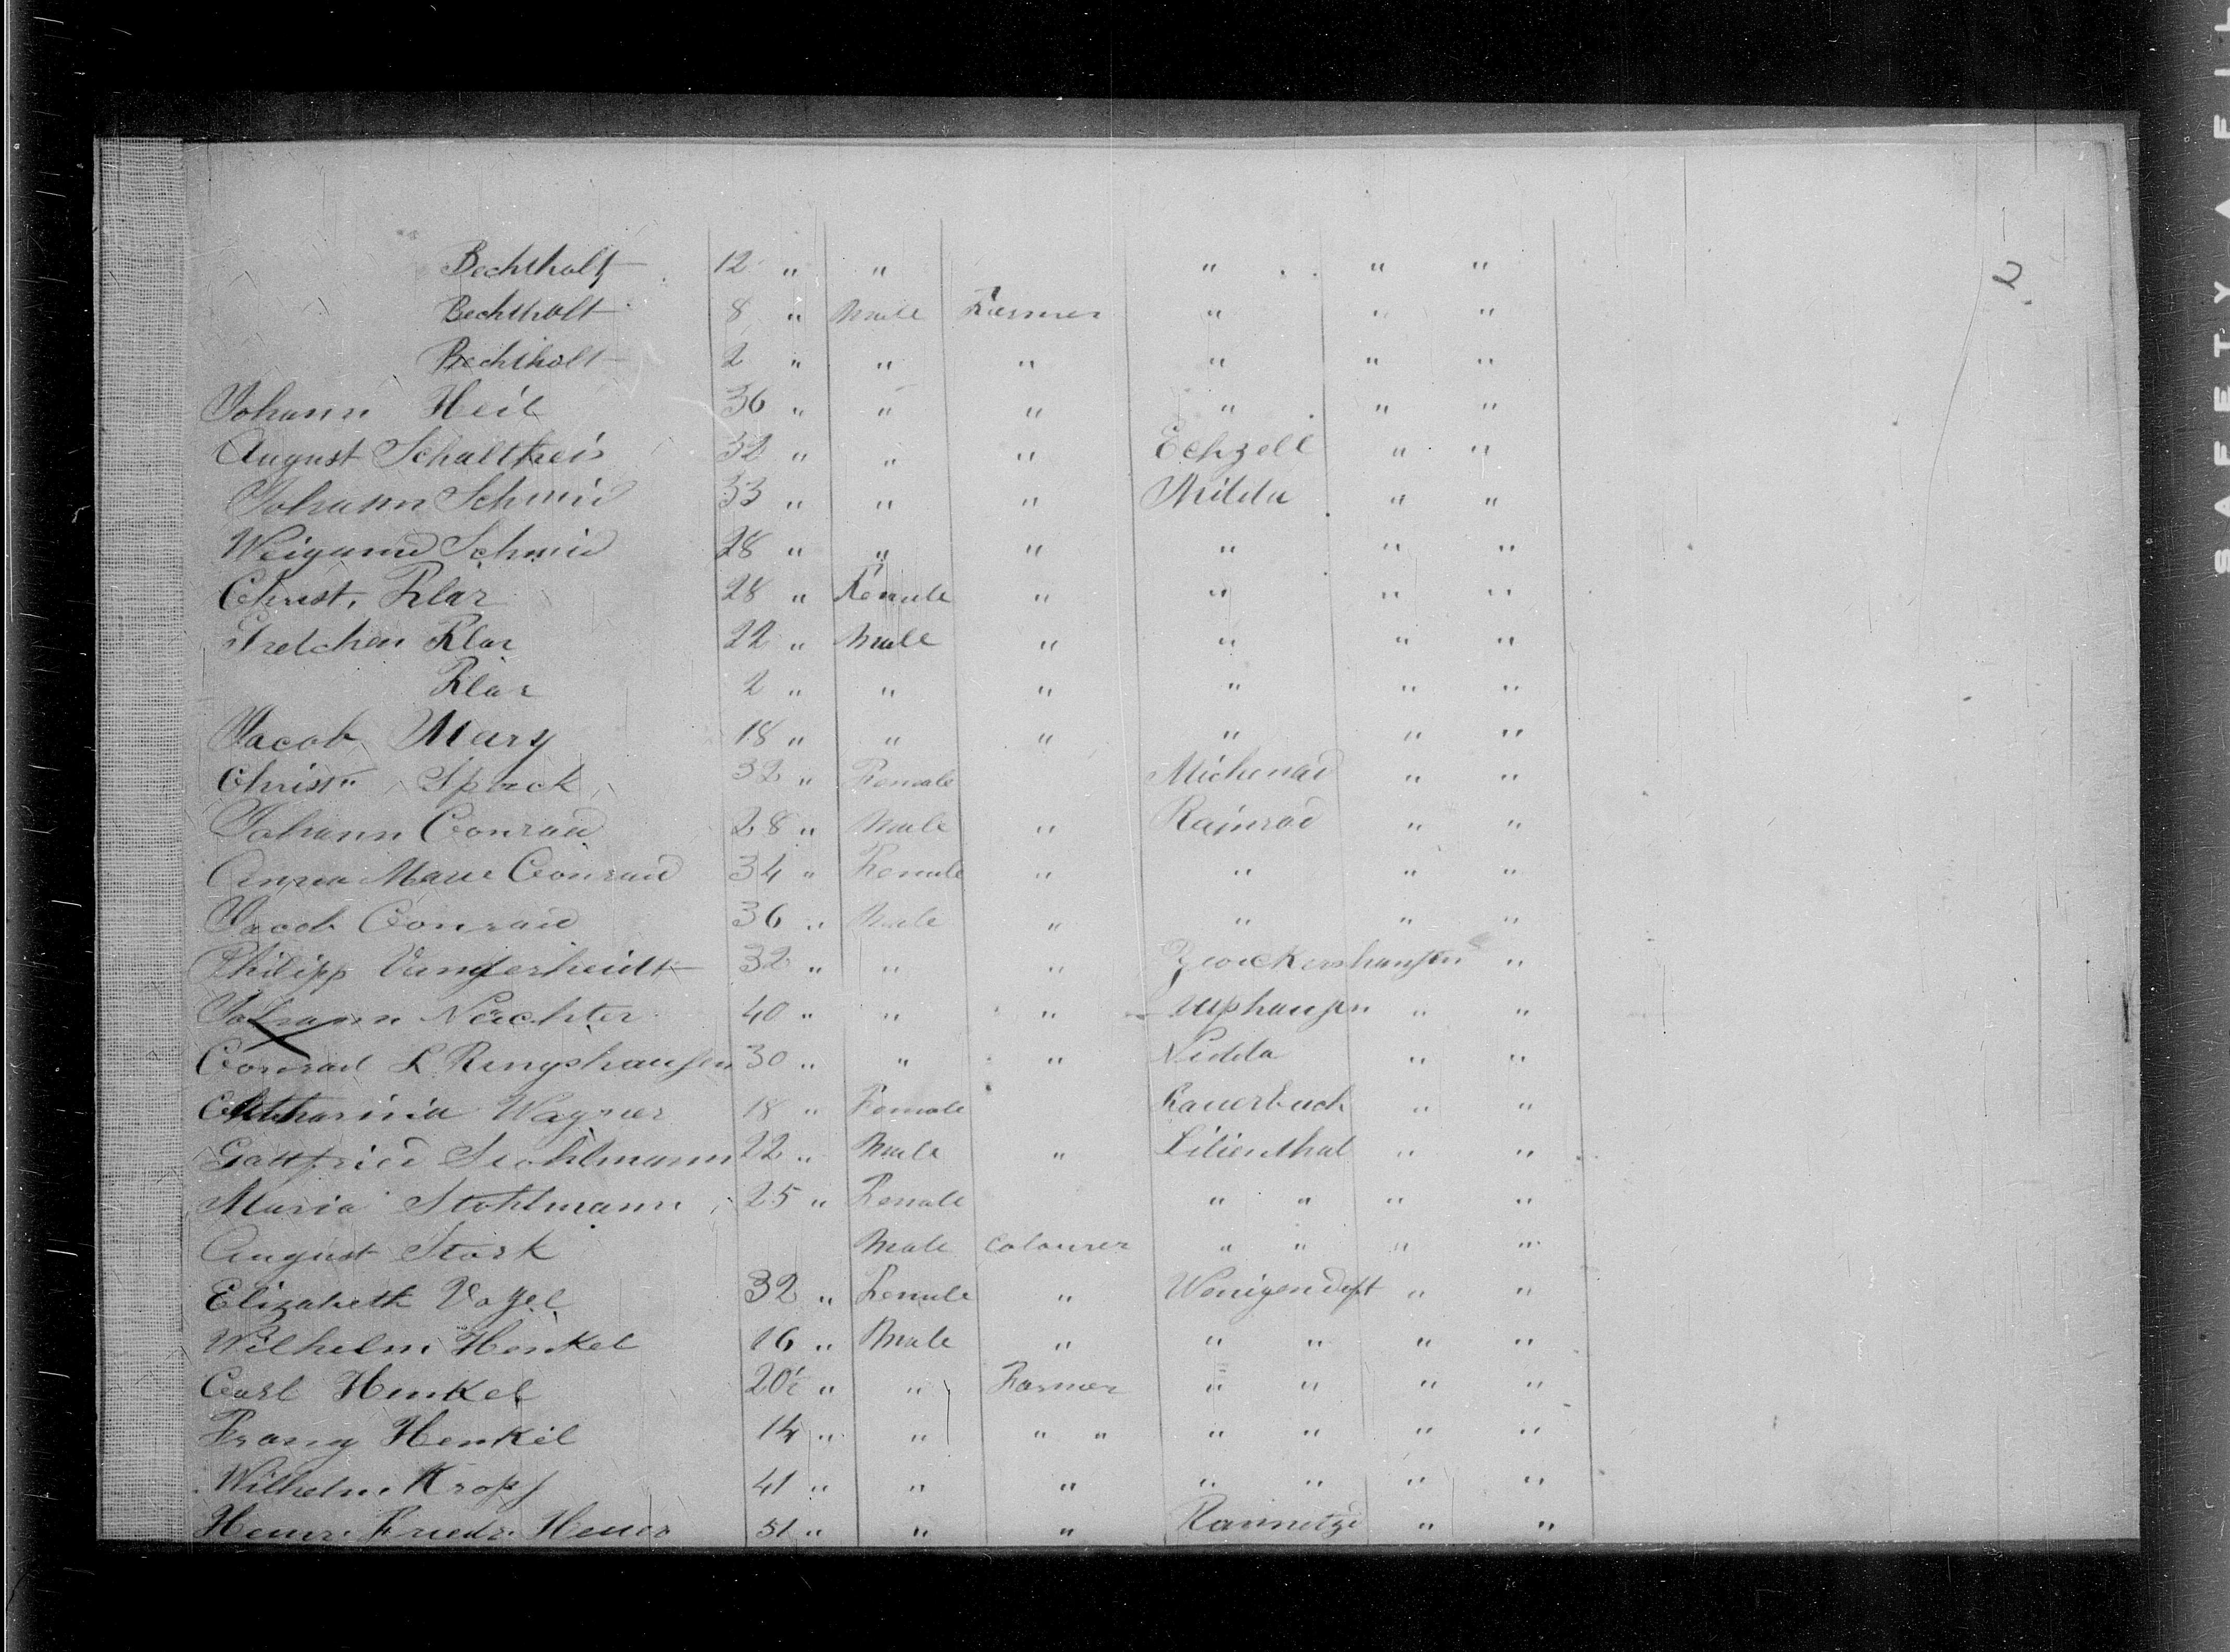 2
Bechtholt 12 " " " " "
Bechtholt 8 " Male Farmer " " "
Bechtholt 2 " " " " " "
Johann Heil 36 " " " " " "
August Schaltheis 32 " " " Echzell " "
Johann Schmid 33 " " " Nidda " "
Weigand Schmid 28 " " " " " "
Christ. Klar 28 " Female " " " "
Gretchen Klar 22 " Male " " " "
Klar 2 " " " " " "
Jacob Marx 18 " " " " " "
Christn Speck 32 " Female Michenad " "
Johann Conrad 28 " Male " Rainrod " "
Anna Marie Conrad 34 " Female " " " "
Jacob Conrad 36 " Male " " " "
Philipp 32 " " " "
Johann Nüchter 40 " " " " "
Conrad L Ringshausen 30 " " " Nidda " "
Catharina Wagner 18 " Female Rauerbach " "
Gottfried Stohlmann 22 " Male " Lilienthal " "
Maria Stohlmann 25 " Female " " " "
August Stork Male Colourer " " " "
Elizabeth Vogel 32 " Female " Wenigendft " "
Wilhelm Henkel 16 " Male " " " " "
Carl Henkel 20½ " " Farmer " " " "
Franz Henkel 14 " " " " " " " "
Wilhelm Kropf 41 " " " " " " "
Heinr. Friedr. Heuer 51 " " " " "
SAFETY